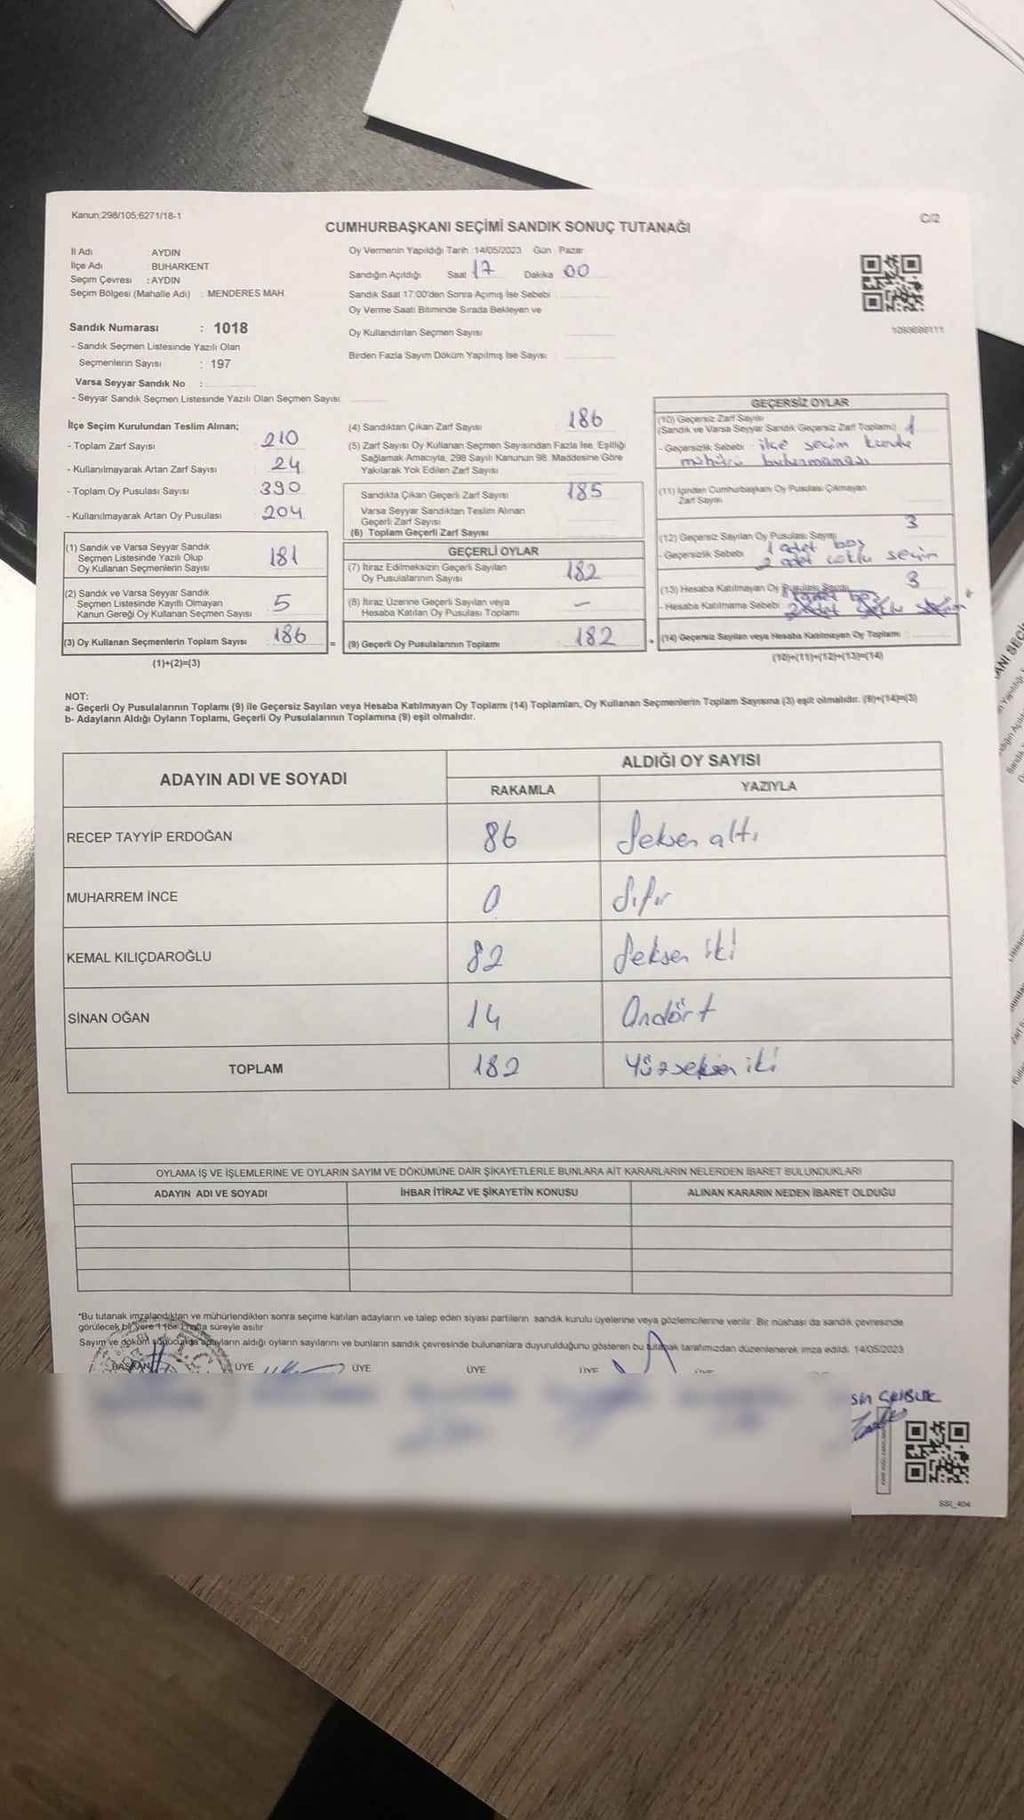 Kanun;298/105;6271/18-1
C/2
CUMHURBAŞKANI SEÇİMİ SANDIK SONUÇ TUTANAĞI
İl Adı AYDIN
İlçe Adı : BUHARKENT
Seçim Çevresi : AYDIN
Seçim Bölgesi (Mahalle Adı) : MENDERES MAH
Sandık Numarası : 1018
- Sandık Seçmen Listesinde Yazılı Olan
Seçmenlerin Sayısı : 197
Varsa Seyyar Sandık No :
- Seyyar Sandık Seçmen Listesinde Yazılı Olan Seçmen Sayısı
Oy Vermenin Yapıldığı Tarih :14/05/2023 Gün : Pazar
Sandığın Açıldığı Saat 17 Dakika 00
Sandık Saat 17:00'den Sonra Açımış İse Sebebi
Oy Verme Saati Bitiminde Sırada Bekleyen ve
Oy Kullandırılan Seçmen Sayısı
Birden Fazla Sayım Döküm Yapılmış İse Sayısı
İlçe Seçim Kurulundan Teslim Alınan;
- Toplam Zarf Sayısı 210
- Kullanılmayarak Artan Zarf Sayısı 24
- Toplam Oy Pusulası Sayısı 390
- Kullanılmayarak Artan Oy Pusulası 204
(1) Sandık ve Varsa Seyyar Sandık
Seçmen Listesinde Yazılı Olup
Oy Kullanan Seçmenlerin Sayısı 181
(2) Sandık ve Varsa Seyyar Sandık
Seçmen Listesinde Kayıtlı Olmayan
Kanun Gereği Oy Kullanan Seçmen Sayısı 5
(3) Oy Kullanan Seçmenlerin Toplam Sayısı 186 =
(1)+(2)=(3)
(4) Sandıktan Çıkan Zarf Sayısı 186
(5) Zarf Sayısı Oy Kullanan Seçmen Sayısından Fazla İse, Eşitliği
Sağlamak Amacıyla, 298 Sayılı Kanunun 98. Maddesine Göre
Yakılarak Yok Edilen Zarf Sayısı
Sandıkta Çıkan Geçerli Zarf Sayısı 185
Varsa Seyyar Sandıktan Teslim Alınan
Geçerli Zarf Sayısı
(6) Toplam Geçerli Zarf Sayısı
GEÇERLİ OYLAR
(7) İtiraz Edilmeksizin Geçerli Sayılan
Oy Pusulalarının Sayısı 182
(8) İtiraz Üzerine Geçerli Sayılan veya
Hesaba Katılan Oy Pusulası Toplamı -
(9) Geçerli Oy Pusulalarının Toplamı 182 +
GEÇERSİZ OYLAR
(10) Geçersiz Zarf Sayısı
(Sandık ve Varsa Seyyar Sandık Geçersiz Zarf Toplamı) 1
- Geçersizlik Sebebi ilçe seçim kurulu
mührü bulunmaması
(11) İçinden Cumhurbaşkanı Oy Pusulası Çıkmayan
Zarf Sayısı
3
(12) Geçersiz Sayılan Oy Pusulası Sayısı
1 adet boş
- Geçersizlik Sebebi 2 adet çoklu seçim
(13) Hesaba Katılmayan Oy Pusulası Sayısı 3
- Hesaba Katılmama Sebebi
(14) Geçersiz Sayılan veya Hesaba Katılmayan Oy Toplamı
(10)+(11)+(12)+(13)=(14)
NOT:
a- Geçerli Oy Pusulalarının Toplamı (9) ile Geçersiz Sayılan veya Hesaba Katılmayan Oy Toplamı (14) Toplamları, Oy Kullanan Seçmenlerin Toplam Sayısına (3) eşit olmalıdır. (9)+(14)=(3)
b- Adayların Aldığı Oyların Toplamı, Geçerli Oy Pusulalarının Toplamına (9) eşit olmalıdır.
ADAYIN ADI VE SOYADI
ALDIĞI OY SAYISI
RAKAMLA YAZIYLA
RECEP TAYYİP ERDOĞAN 86 Seksen altı
MUHARREM İNCE 0 Sıfır
KEMAL KILIÇDAROĞLU 82 Seksen iki
SİNAN OĞAN 14 Ondört
TOPLAM 182 Yüzseksen iki
OYLAMA İŞ VE İŞLEMLERİNE VE OYLARIN SAYIM VE DÖKÜMÜNE DAİR ŞİKAYETLERLE BUNLARA AİT KARARLARIN NELERDEN İBARET BULUNDUKLARI
ADAYIN ADI VE SOYADI İHBAR İTİRAZ VE ŞİKAYETİN KONUSU ALINAN KARARIN NEDEN İBARET OLDUĞU
*Bu tutanak imzalandıktan ve mühürlendikten sonra seçime katılan adayların ve talep eden siyasi partilerin sandık kurulu üyelerine veya gözlemcilerine verilir. Bir nüshası da sandık çevresinde
görülecek bir yere 1 hafta süreyle asılır
Sayım ve döküm sonucunda adayların aldığı oyların sayılarını ve bunların sandık çevresinde bulunanlara duyurulduğunu gösteren bu tutanak tarafımızdan düzenlenerek imza edildi. 14/05/2023
BAŞKAN ÜYE ÜYE ÜYE ÜYE
SSI_404